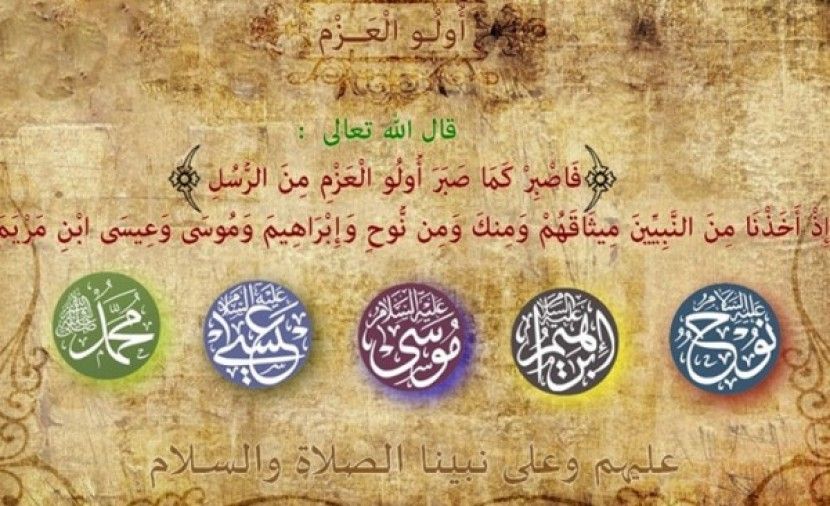 أُولُو الْعَـزْم
قال الله تعالى :
﴿فَاصْبِرْ كَمَا صَبَرَ أُولُو الْعَزْمِ مِنَ الرُّسُلِ﴾
إِذْ أَخَذْنَا مِنَ النَّبِيِّينَ مِيثَاقَهُمْ وَمِنكَ وَمِن نُّوحٍ وَإِبْرَاهِيمَ وَمُوسَى وَعِيسَى ابْنِ مَرْيَمَ
نوح عليه السلام
إبراهيم عليه السلام
موسى عليه السلام
عيسى عليه السلام
محمد ﷺ
عليهم وعلى نبينا الصلاة والسلام